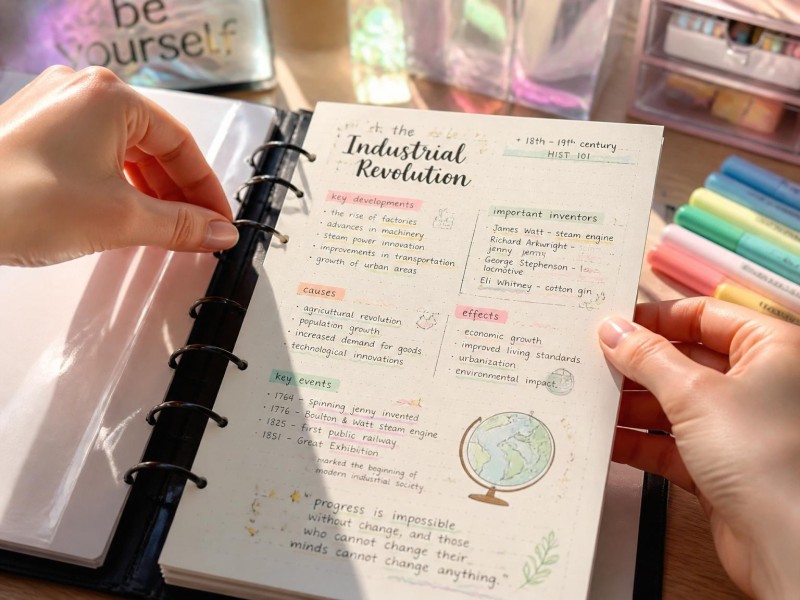 be
yourself
the
Industrial
Revolution
• 18th - 19th century
HIST 101
key developments
• the rise of factories
• advances in machinery
• steam power innovation
• improvements in transportation
• growth of urban areas
important inventors
James Watt - steam engine
Richard Arkwright -
jenny
George Stephenson -
locmotive
• Eli Whitney - cotton gin
causes
• agricultural revolution
• population growth
• increased demand for goods
• technological innovations
effects
• economic growth
• improved living standards
• urbanization
• environmental impact
key events
• 1764 - spinning jenny invented
• 1776 - Boulton & Watt steam engine
• 1825 - first public railway
• 1851 - Great Exhibition
marked the beginning of
modern industrial society
"progress is impossible
without change, and those
who cannot change their
minds cannot change anything."